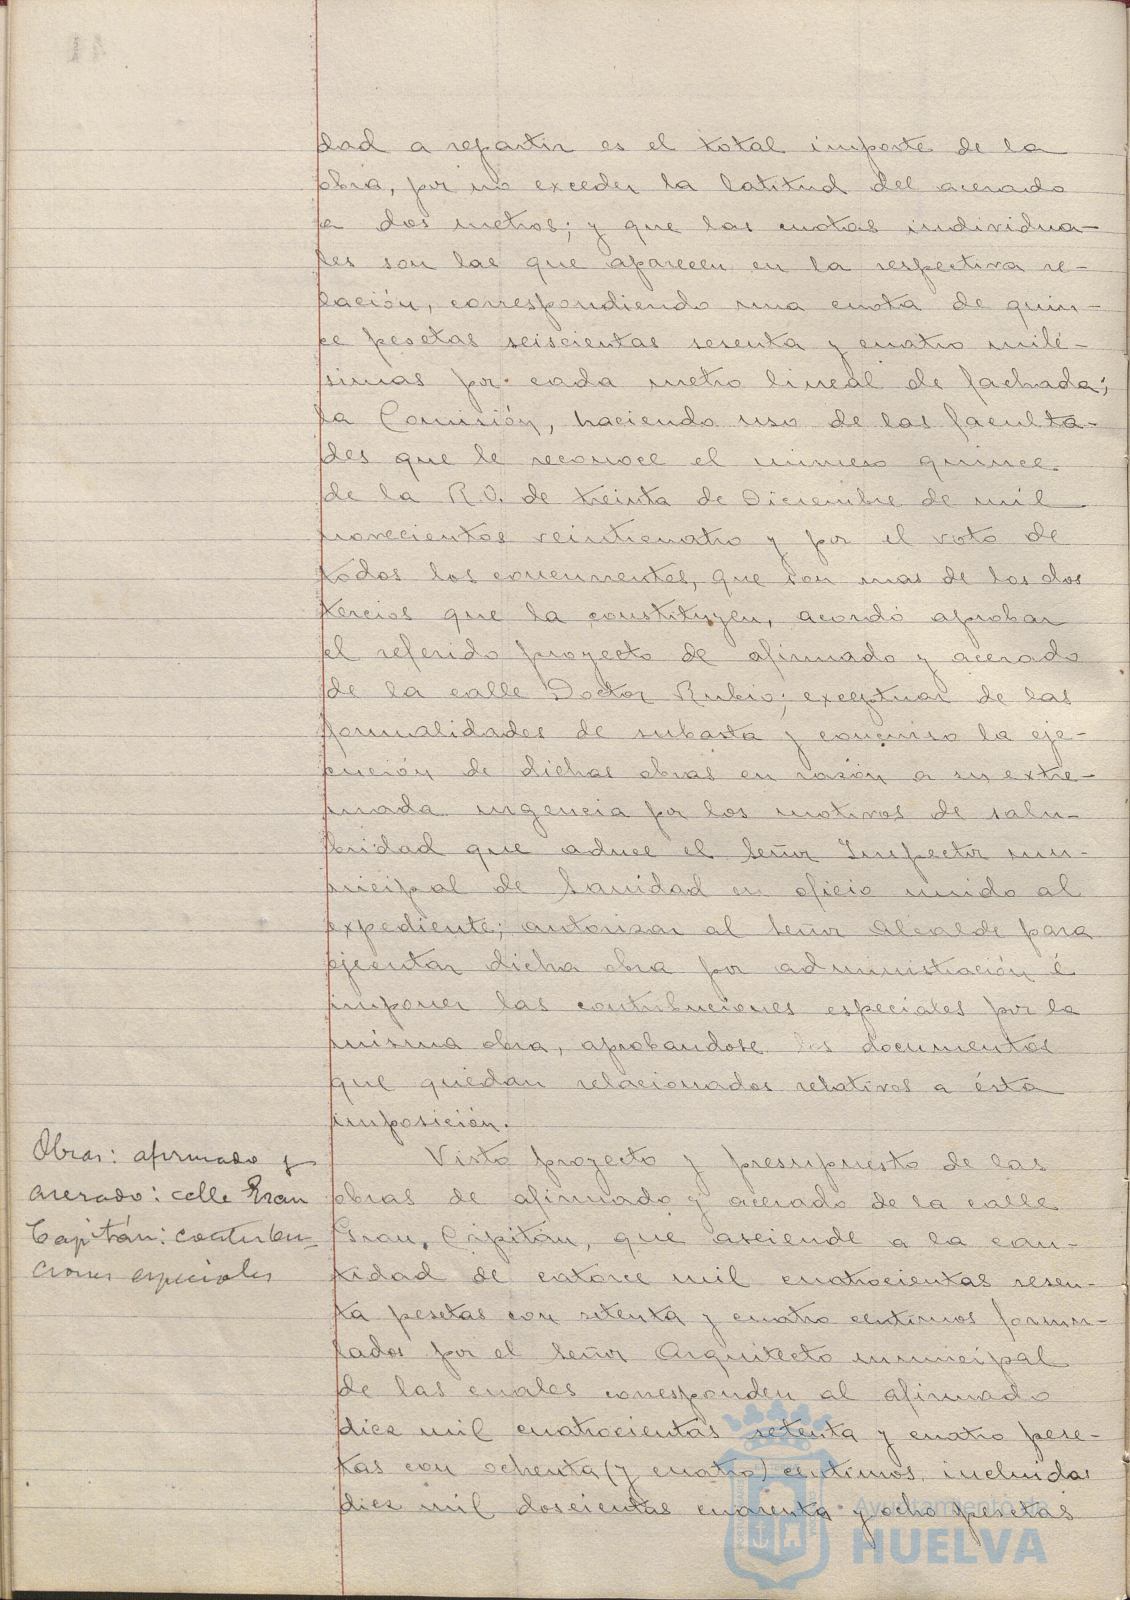 dad a repartir es el total importe de la
obra, por no exceder la latitud del acerado
a dos metros; y que las cuotas individua-
les son las que aparecen en la respectiva re-
lación, correspondiendo una cuota de quin-
ce pesetas seiscientas sesenta y cuatro milé-
simas por cada metro lineal de fachada;
la Comisión, haciendo uso de las faculta-
des que le reconoce el número quince
de la R.O. de treinta de Diciembre de mil
novecientos veinticuatro y por el voto de
todos los concurrentes, que son mas de los dos
tercios que la constituyen, acordó aprobar
el referido proyecto de afirmado y acerado
de la calle Doctor Rubio; exceptuar de las
formalidades de subasta y concurso la eje-
cución de dichas obras en razón a su extre-
mada urgencia por los motivos de salu-
bridad que aduce el Señor Inspector mu-
nicipal de Sanidad en oficio unido al
expediente; autorizar al Señor Alcalde para
ejecutar dicha obra por administración é
imponer las contribuciones especiales por la
misma obra, aprobandose los documentos
que quedan relacionados relativos a ésta
imposición.
Obras: afirmado y
acerado: calle Gran
Capitán: contribu-
ciones especiales
Visto proyecto y presupuesto de las
obras de afirmado y acerado de la calle
Gran Capitán, que asciende a la can-
tidad de catorce mil cuatrocientas sesen-
ta pesetas con setenta y cuatro centimos formu-
lados por el Señor Arquitecto municipal
de las cuales corresponden al afirmado
diez mil cuatrocientas setenta y cuatro pese-
tas con ochenta (y cuatro) centimos, incluidas
diez mil doscientas cuarenta y ocho pesetas
Ayuntamiento de
HUELVA